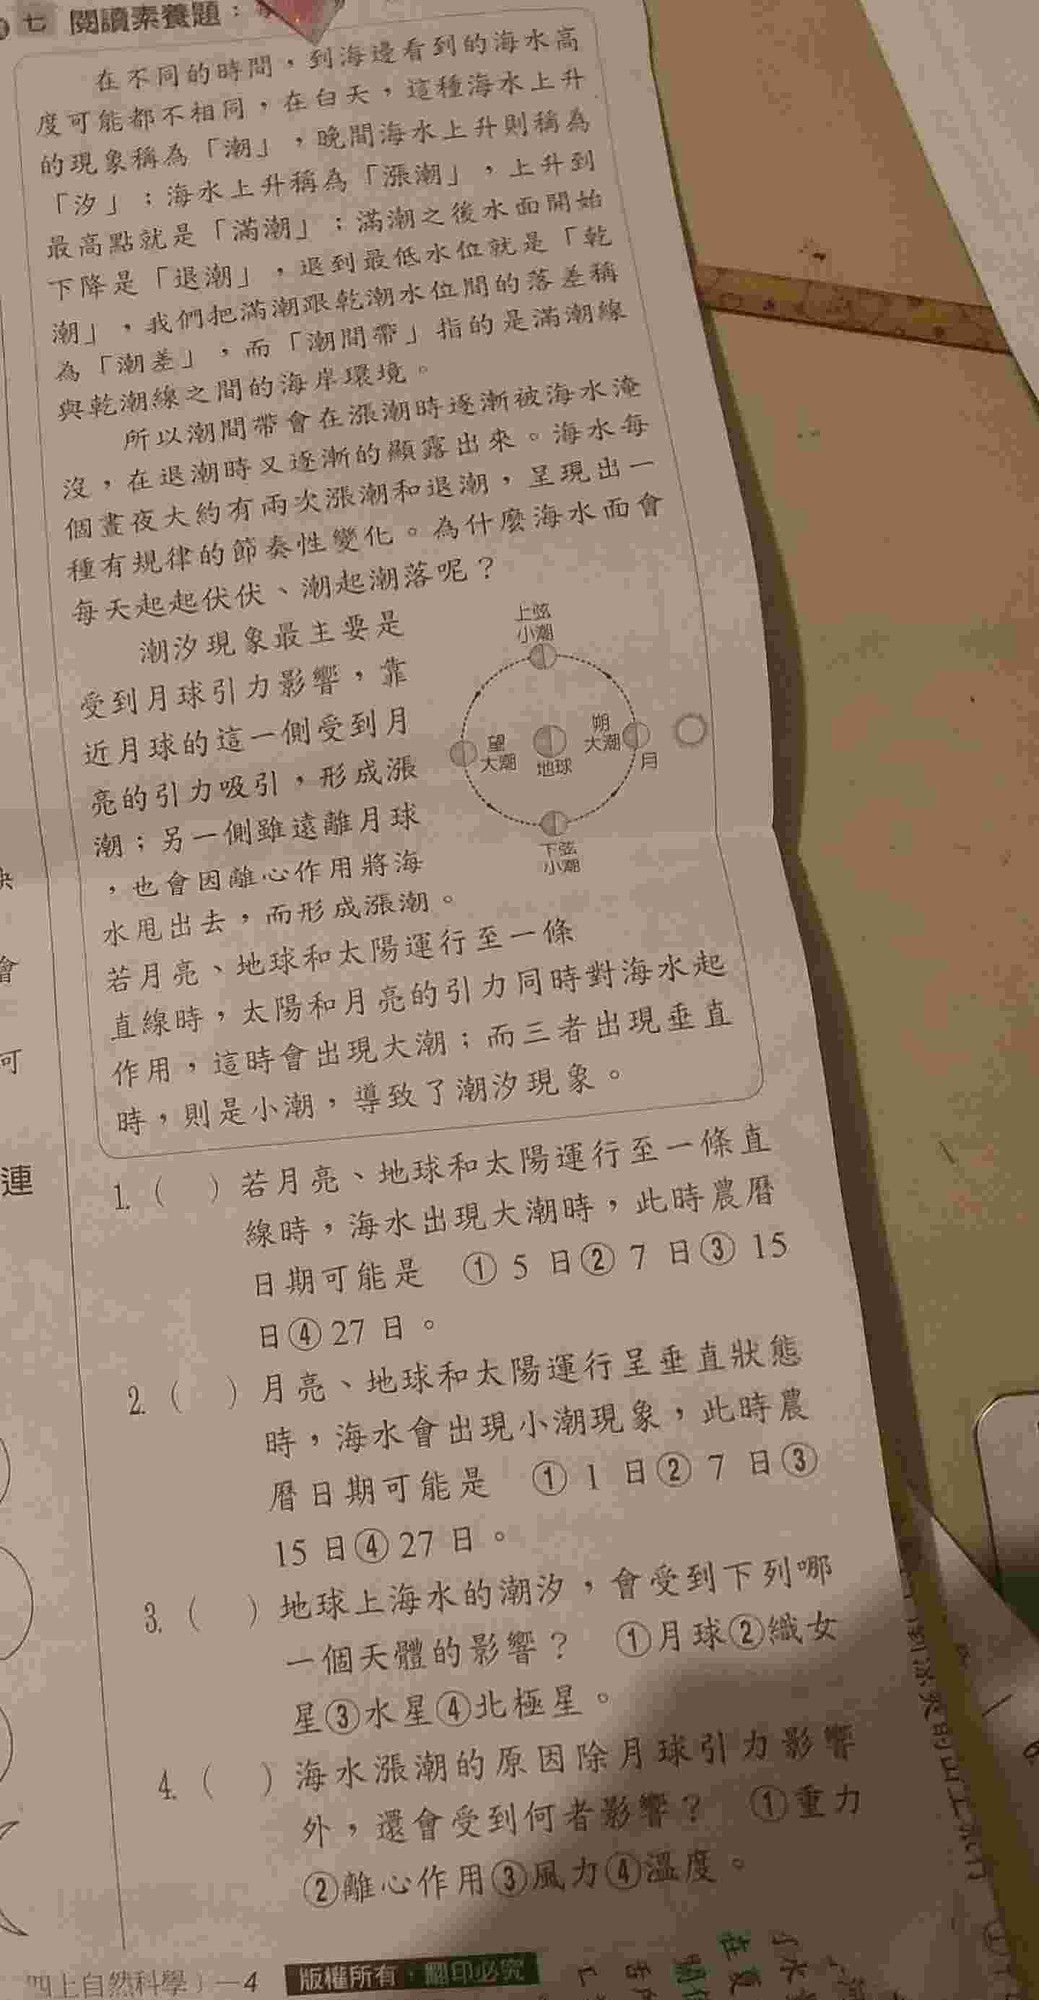 七 閱讀素養題：
在不同的時間，到海邊看到的海水高
度可能都不相同，在白天，這種海水上升
的現象稱為「潮」，晚間海水上升則稱為
「汐」；海水上升稱為「漲潮」，上升到
最高點就是「滿潮」；滿潮之後水面開始
下降是「退潮」，退到最低水位就是「乾
潮」，我們把滿潮跟乾潮水位間的落差稱
為「潮差」，而「潮間帶」指的是滿潮線
與乾潮線之間的海岸環境。
所以潮間帶會在漲潮時逐漸被海水淹
沒，在退潮時又逐漸的顯露出來。海水每
個晝夜大約有兩次漲潮和退潮，呈現出一
種有規律的節奏性變化。為什麼海水面會
每天起起伏伏、潮起潮落呢？
潮汐現象最主要是
受到月球引力影響，靠
近月球的這一側受到月
亮的引力吸引，形成漲
潮；另一側雖遠離月球
，也會因離心作用將海
水甩出去，而形成漲潮。
若月亮、地球和太陽運行至一條
直線時，太陽和月亮的引力同時對海水起
作用，這時會出現大潮；而三者出現垂直
時，則是小潮，導致了潮汐現象。
上弦
小潮
望
大潮
地球
朔
大潮
月
下弦
小潮
1.（ ）若月亮、地球和太陽運行至一條直
線時，海水出現大潮時，此時農曆
日期可能是 ① 5 日② 7 日③ 15
日④ 27 日。
2.（ ）月亮、地球和太陽運行呈垂直狀態
時，海水會出現小潮現象，此時農
曆日期可能是 ① 1 日② 7 日③
15 日④ 27 日。
3.（ ）地球上海水的潮汐，會受到下列哪
一個天體的影響？ ①月球②織女
星③水星④北極星。
4.（ ）海水漲潮的原因除月球引力影響
外，還會受到何者影響？ ①重力
②離心作用③風力④溫度。
四上自然科學）－4 版權所有・翻印必究
會
可
連